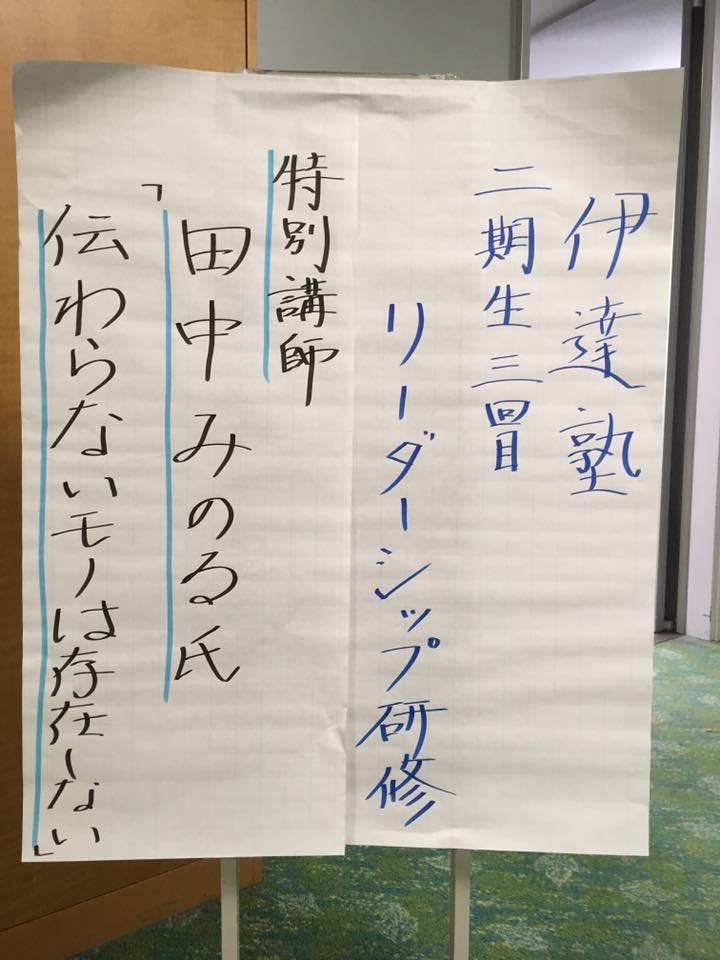 伊達塾
二期生三回目
リーダーシップ研修
特別講師
田中みのる氏
「伝わらないモノは存在しない」